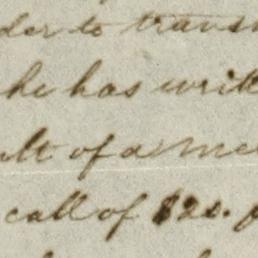 der to trans
he has writt
ult of a me
call of $20. p